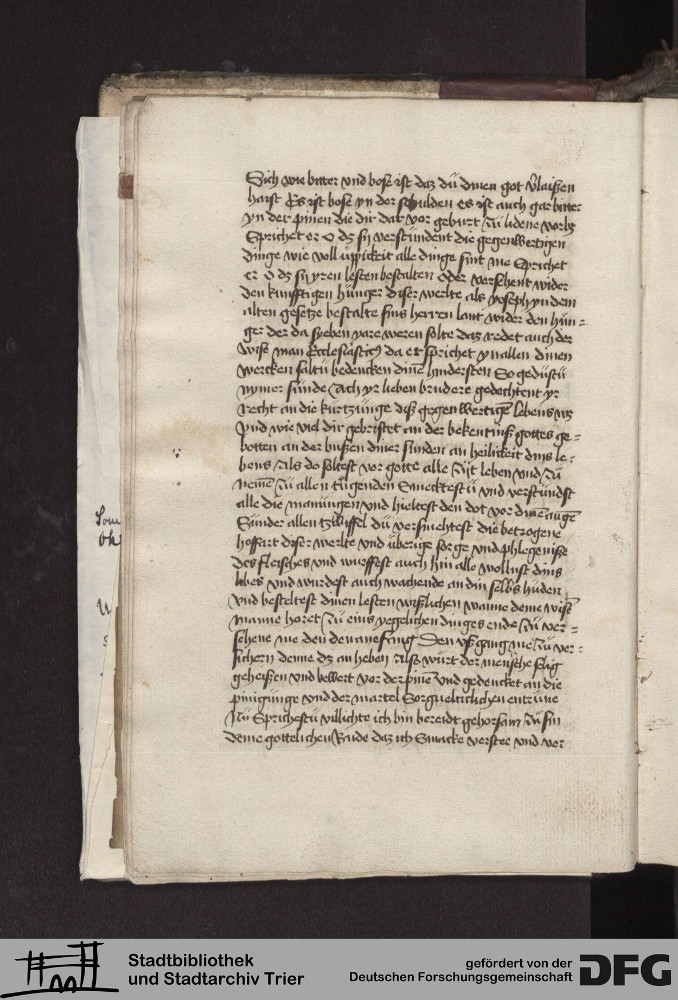 Sich wie bitter vnd bose ist daz du dinen got v̓laißen
haist Es ist bose yn der schulden es ist auch gar bitter
yn der pinen die dir dar vor geburt zü lidene
Sprichet er O dz sy verstündent die gegenwertigen
dinge wie voll üppickeit alle dinge sint me Sprichet
er O dz sy yren lesten bestalten oder versehent wider
den kunfftigen hünger diser werlte als yoseph yn dem
alten gesetze bestalte sins herren lant wider den hün=
ger der da syeben yare weren solte daz redet auch der
wise man Ecclesiasticꝰ da er sprichet yn allen dinen
wercken saltü bedencken dine hindersten So gedüstü
nymer sünde Ach yr lieben brudere gedechtent yr
recht an die kurtzünge diß gegenwertigē lebens
vnd wie viel dir gebristet an der bekentniß gottes ge=
botten an der bußen diner sunden an heilickeit dins le=
bens Als do soltest vor gotte alle zijt leben vnd zü
nemē zü allen tügenden Smecktestü vnd verstündst
alle die manüngen vnd hieltest den dot vor dinē augē
Sünder allen tzwiffel du versmehtest die betrogene
hoffart diser werlte vnd überige sorge vnd phlegeniße
des fleisches vnd wurffest auch hin alle wollust dins
libes vnd wurdest auch wachende an din selbs huden
vnd bestestest dinen lesten wißlichen wanne deme wisē
manne horet zü eins yegelichen dinges ende zü ver=
sehene me den den anefang Den vßgang me zü ver=
sichern denne dz an heben Alß würt der mensche selig
geheißen vnd bewert vor der pinē vnd gedencket an die
pinigünge vnd der martel Sorguelticlichen entrüne
Nu Sprichestü villichte ich bin bereidt gehorsam zü sin
deme gottelichen Raide daz ich Smacke verstee vnd vor
Stadtbibliothek
und Stadtarchiv Trier
gefördert von der
Deutschen Forschungsgemeinschaft
DFG